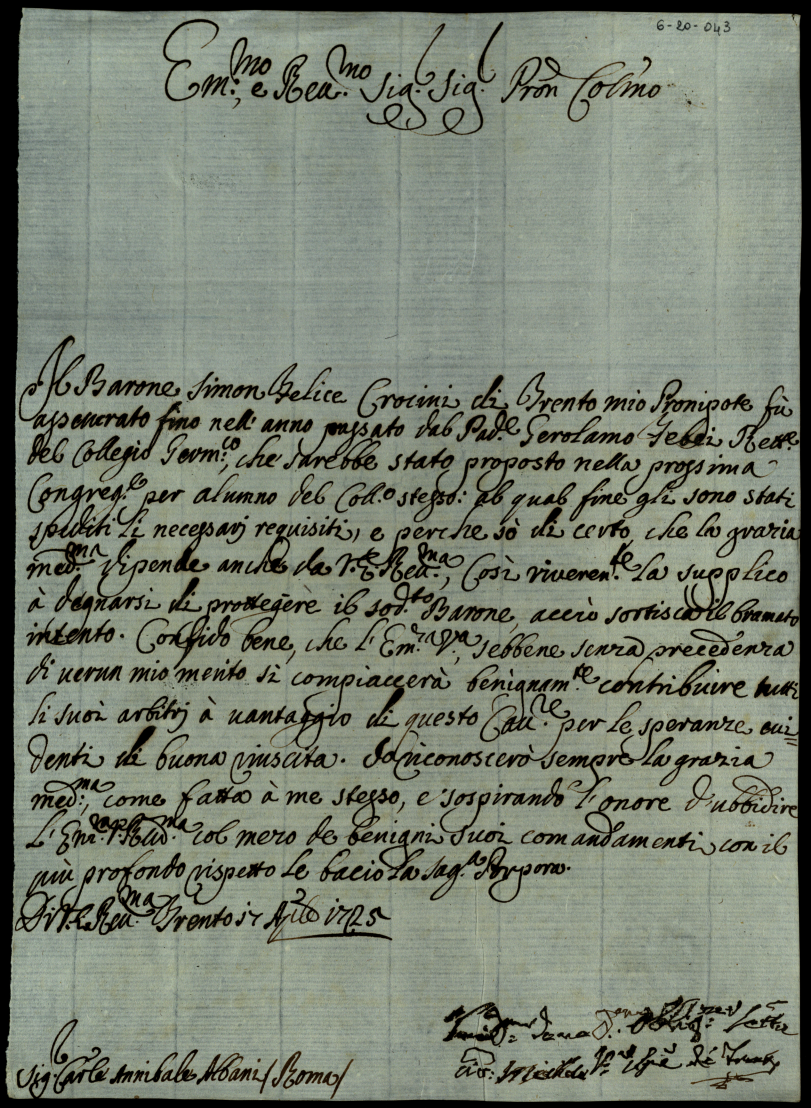 6-20-043
Em:mo, e Reu.mo Sig.r Sig.r Pron Colmo
Il Barone Simon Felice Crocini di Trento mio Pronipote fù
asseurato fino nell'anno passato dal Pad.e Gerolamo Rett.e
del Collegio Germ:co, che sarebbe stato proposto nella prossima
Congreg.e per alumno del Coll.o stesso: al qual fine gli sono stati
spediti li necessarj requisiti, e perche sò di certo, che la grazia
med:ma dipende anche da V.E. Reu.ma, Così riveren.te la supplico
à degnarsi di proteggere il sod.to Barone, acciò sortisca il bramato
intento. Confido bene, che l'Em.za V.a, sebbene senza precedenza
di uerun mio merito si compiaccerà benignam.te contribuire tutti
li suoi arbitrj à uantaggio di questo Cau.re per le speranze eui=
denti di buona riuscita. Io riconoscerò sempre la grazia
med:ma, come fatta à me stesso, e sospirando l'onore d'ubbidire
L'Em.za V. Reu.ma col mero de benigni suoi comandamenti, con il
più profondo rispetto le bacio la Sag.a Porpora.
Di V.E. Reu.ma Trento 17 1725
Sig.r Carle Annibale Albani /Roma/